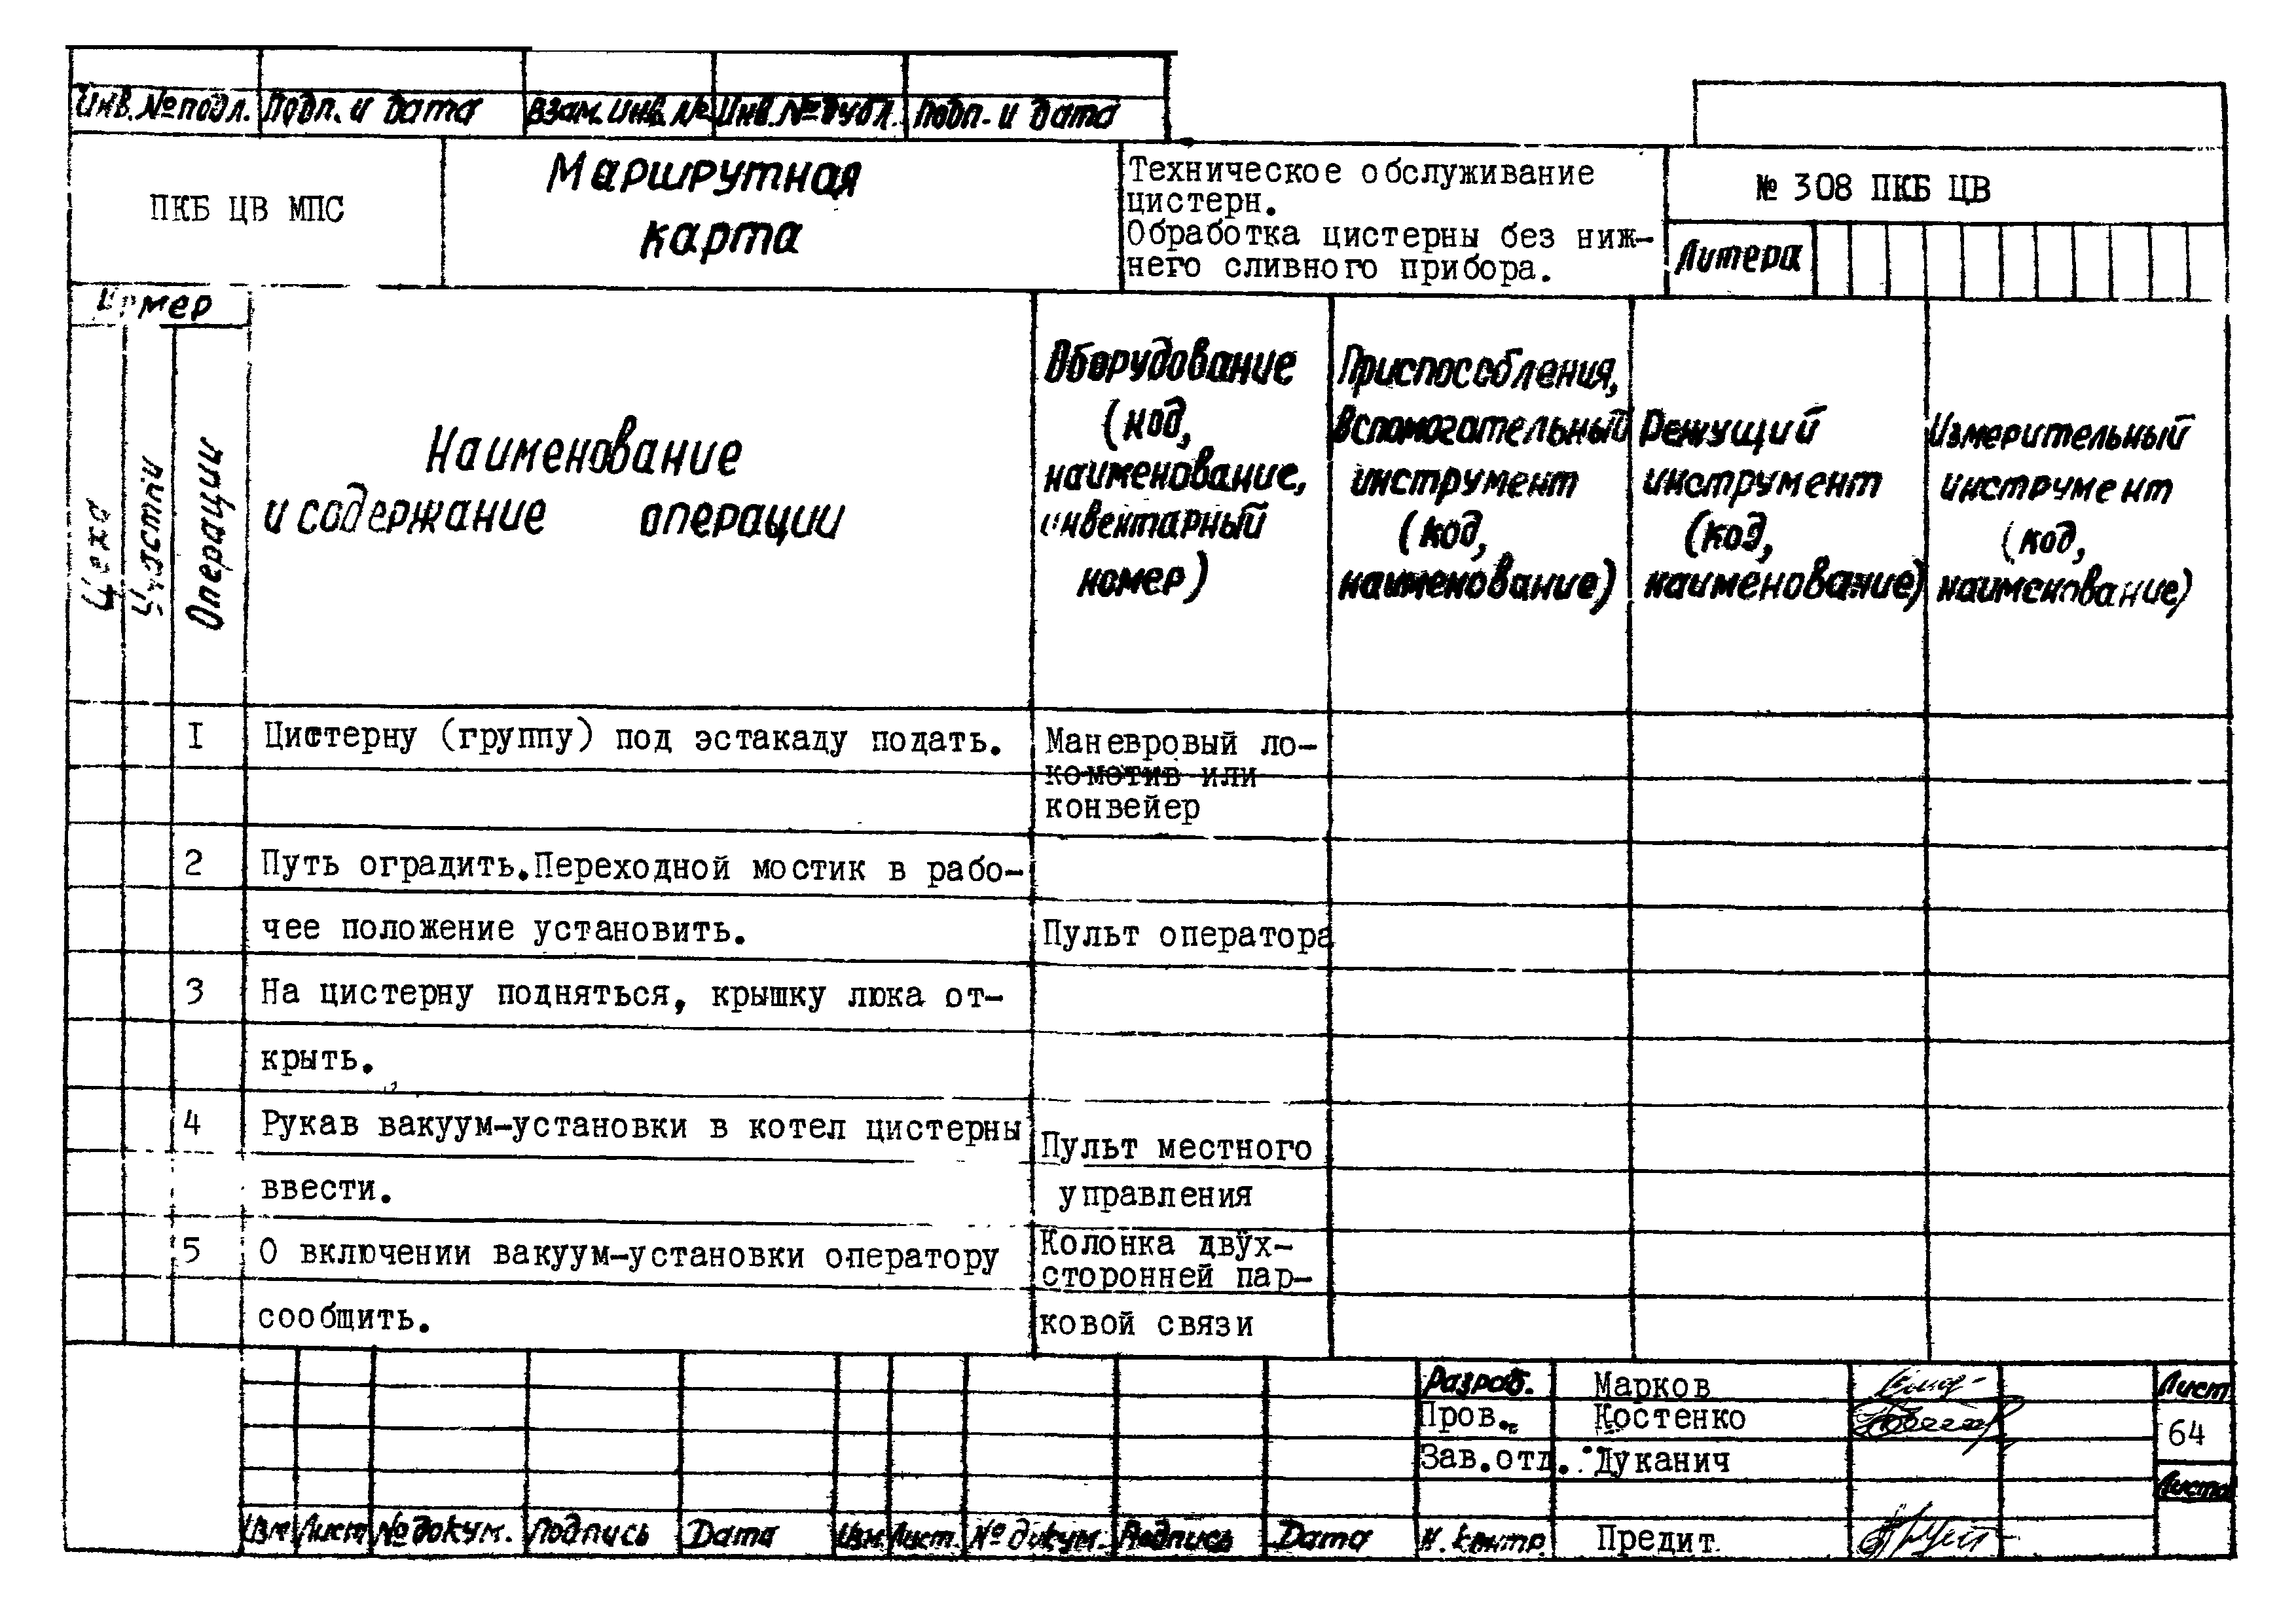 Инв.№подл. Подп. и дата Взам. Инв. № Инв.№дубл. Подп. и дата
ПКБ ЦВ МПС
Маршрутная
карта
Техническое обслуживание
цистерн.
Обработка цистерны без ниж-
него сливного прибора.
№ 308 ПКБ ЦВ
Литера
Номер
Цеха
Участки
Операции
Наименование
и содержание операции
Оборудование
(код,
наименование,
инвентарный
номер)
Приспособления,
вспомогательный
инструмент
(код,
наименование)
Режущий
инструмент
(код,
наименование)
Измерительный
инструмент
(код,
наименование)
I Цистерну (группу) под эстакаду подать. Маневровый ло-
комотив или
конвейер
2 Путь оградить.Переходной мостик в рабо-
чее положение установить. Пульт оператора
3 На цистерну подняться, крышку люка от-
крыть.
4 Рукав вакуум-установки в котел цистерны Пульт местного
ввести. управления
5 О включении вакуум-установки оператору Колонка двух-
сторонней пар-
сообщить. ковой связи
Разраб. Марков Лист
Пров. Костенко 64
Зав.отд. Дуканич
Листов
Изм Лист № докум. Подпись Дата Изм. Лист. № докум. Подпись Дата Н. контр. Предит.